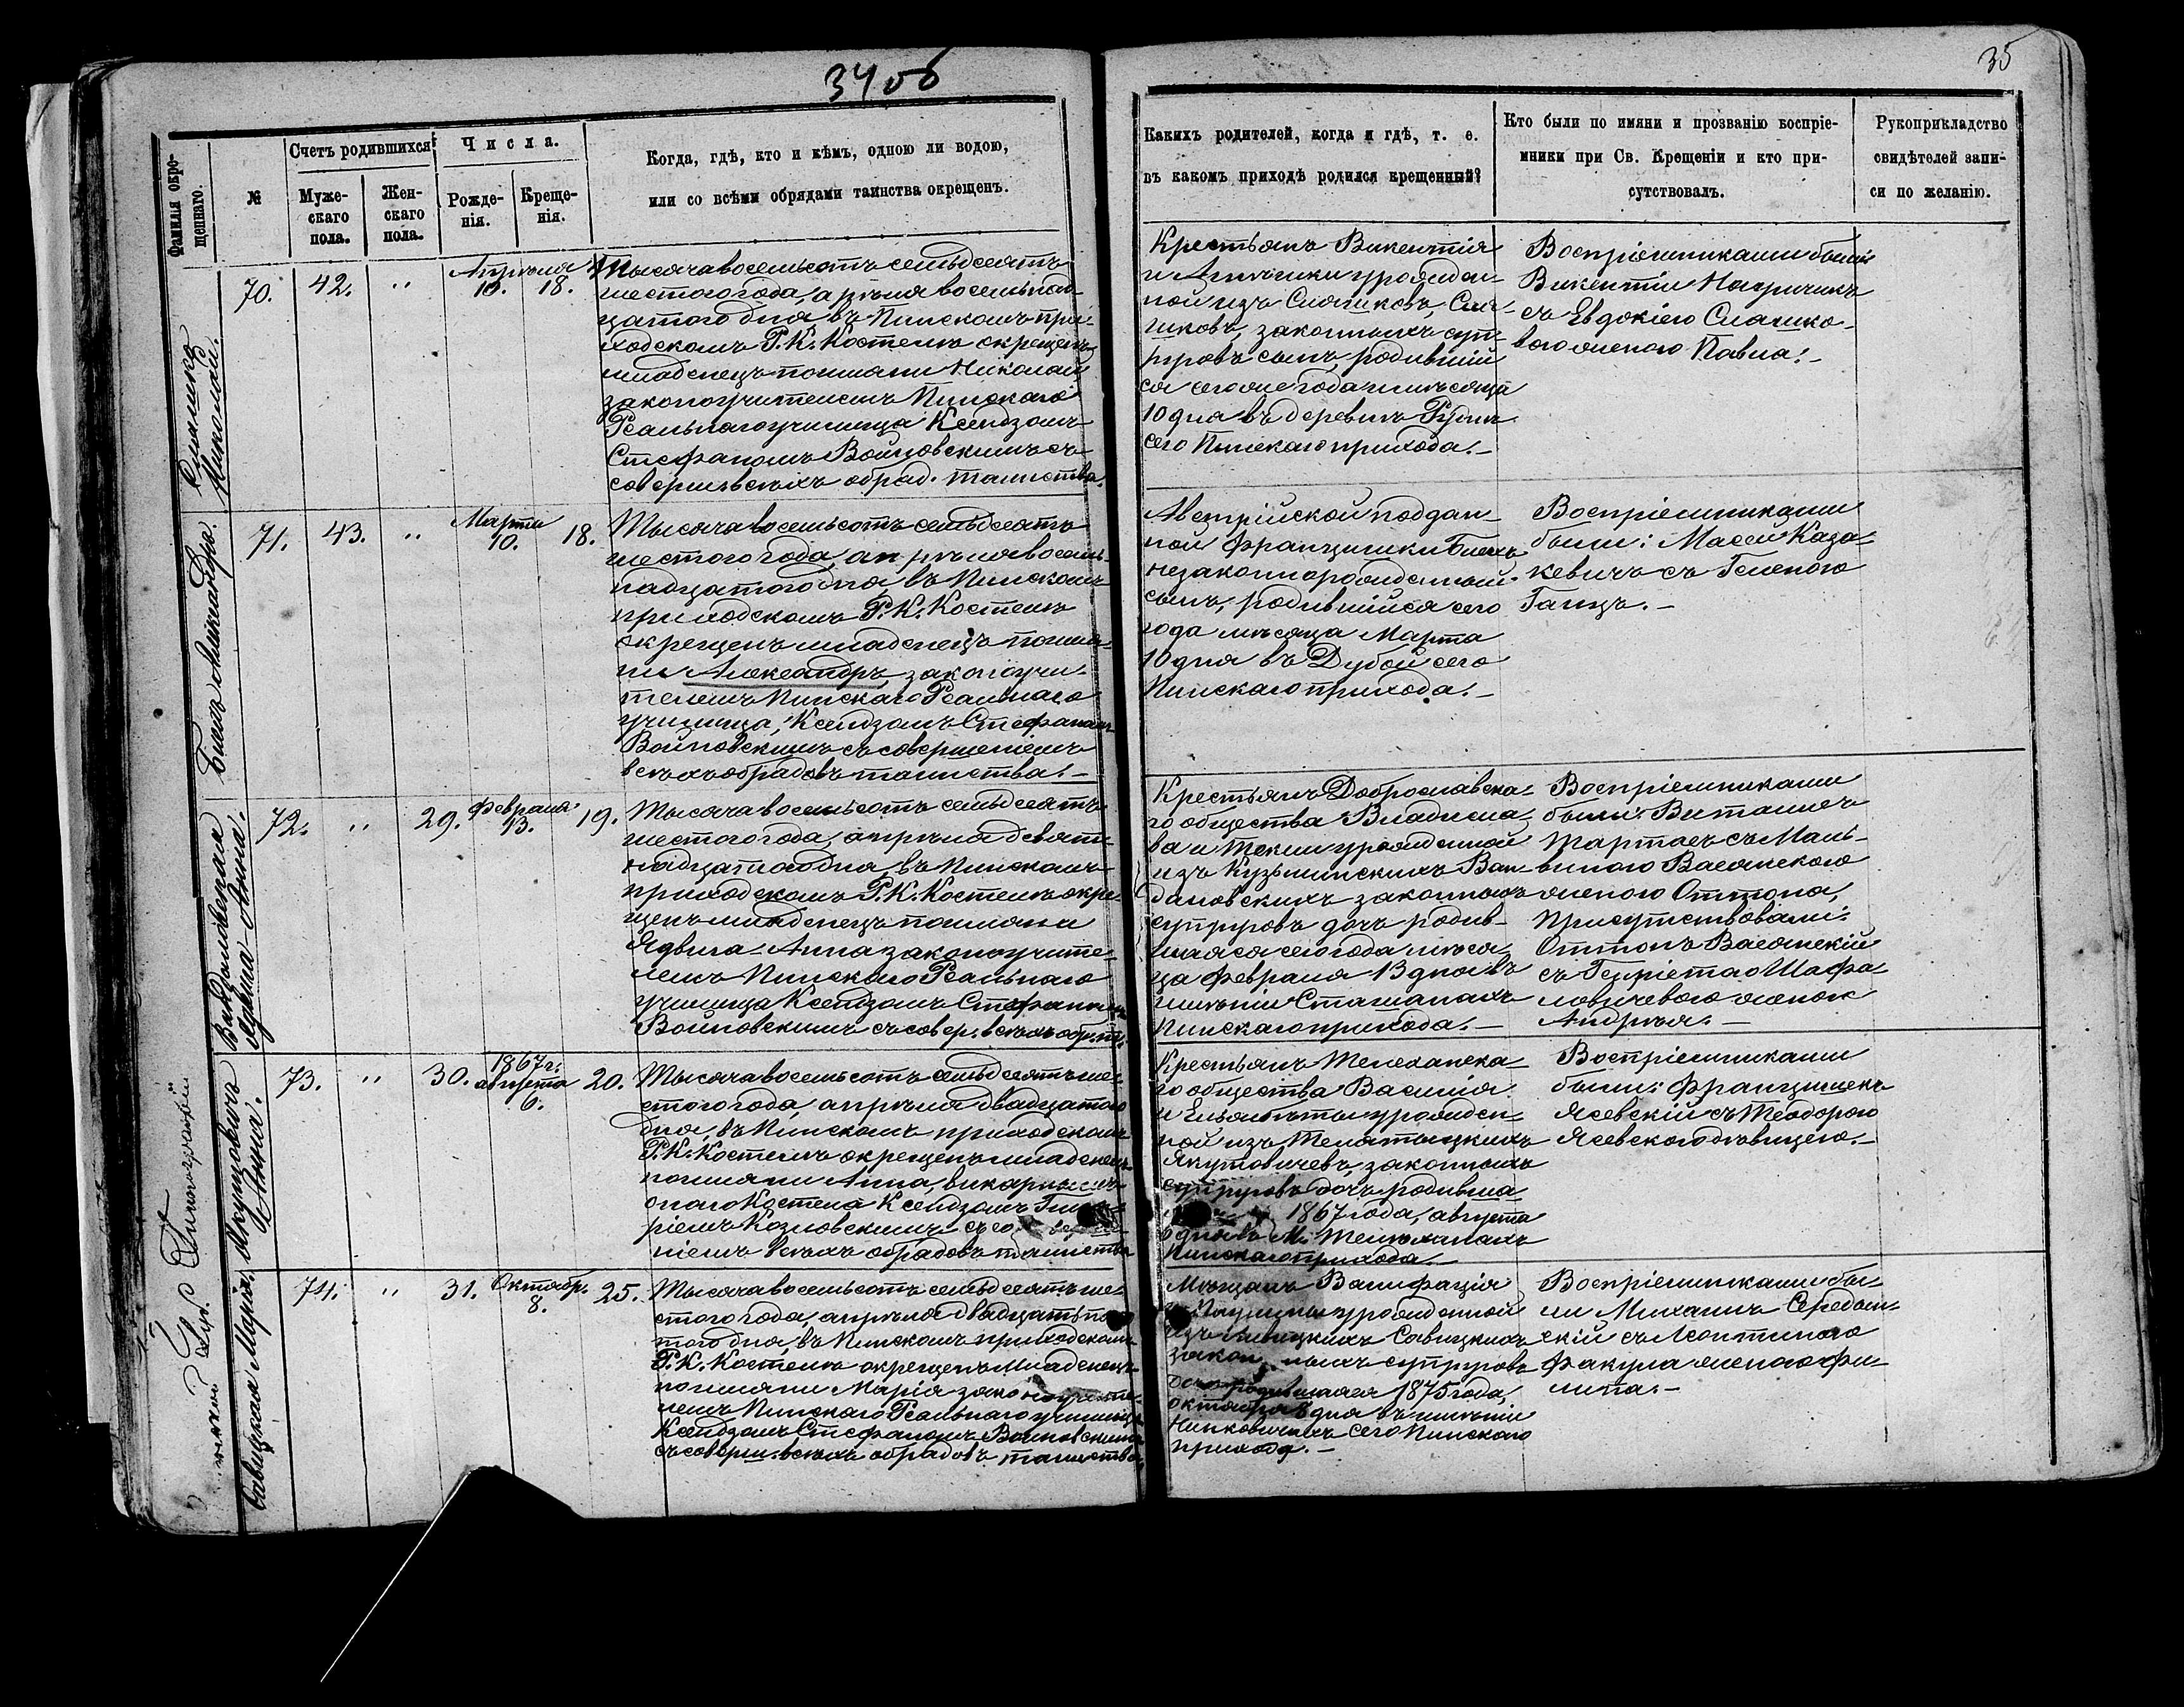 34 об
35
Фамилія окре-
щеннаго.
№
Счетъ родившихся
Муже-
скаго
пола.
Жен-
скаго
пола.
Числа.
Рожде-
нія.
Креще-
нія.
Когда, гдѣ, кто и кѣмъ, одною ли водою,
или со всѣми обрядами таинства окрещенъ.
Какихъ родителей, когда и гдѣ, т. е.
въ какомъ приходѣ родился крещенный?
Кто были по имяни и прозванію воспріе-
мники при Св. Крещеніи и кто при-
сутствовалъ.
Рукоприкладство
свидѣтелей запи-
си по желанію.
Николай.
70.
42.
"
Апрѣля
10. 18.
Тысяча восемьсотъ семьдесятъ
шестого года, апрѣля восемьнад
цатого дня въ Пинскомъ при-
ходскомъ Р. К. Костелѣ окрещенъ
младенецъ по имяни Николай
законоучителемъ Пинскаго
Реальнаго училища Ксендзомъ
Стефаномъ Войновскимъ съ
соверш. всѣхъ обряд. таинства.
Крестьянъ Викентія
и урожден-
ной изъ
законныхъ суп-
руговъ сынъ, родившій
ся сего же года мѣсяца
10 дня въ деревнѣ
сего Пинскаго прихода.-
Воспріемниками были
Викентій
съ Евдокіею
вою женою Павла.-
Александръ.
71.
43.
"
Марта
10.
18.
Тысяча восемьсотъ семьдесятъ
шестого года, апрѣля восемь-
надцатого дня, въ Пинскомъ
приходскомъ Р. К. Костелѣ
окрещенъ младенецъ по имя-
ни Александръ, законоучи-
телемъ Пинскаго Реальнаго
училища, Ксендзомъ Стефаномъ
Войновскимъ съ совершеніемъ
всѣхъ обрядовъ таинства.-
Австрійской поддан-
ной Францишки
незаконнорожденный
сынъ, родившійся сего
года мѣсяца Марта
10 дня въ Дубой сего
Пинскаго прихода.-
Воспріемниками
были: Казa-
кевичъ съ Геленою
Ганцъ.-
Вандаловская
Ядвига-Анна.
72.
"
29.
Февраля
13.
19.
Тысяча восемьсотъ семьдесятъ
шестого года, апрѣля девят-
надцатаго дня, въ Пинскомъ
приходскомъ Р. К. Костелѣ окре-
щенъ младенецъ по имяни
Ядвига-Анна законоучите-
лемъ Пинскаго Реальнаго
училища Ксендзомъ Стефаномъ
Войновскимъ съ совер. всѣхъ обр. т.
Крестьянъ Доброславска-
го общества Владисла-
ва и Текли урожденной
изъ Кузьминскихъ Ван-
даловскихъ законныхъ
супруговъ дочь родив-
шаяся сего года мѣся-
ца Февраля 13 дня въ
имѣніи Сташанахъ
Пинскаго прихода.-
Воспріемниками
были:
съ Маль-
виною
женою Оттона,
Присутствовали:
Оттонъ
съ Генріетою Шафа-
ловичевою женою
Андрея.-
Якутовичъ
Анна.
73.
"
30.
1867 г.
августа
6.
20.
Тысяча восемьсотъ семьдесятъ ше-
стого года, апрѣля двадцатого
дня, въ Пинскомъ приходскомъ
Р. К. Костелѣ окрещенъ младенецъ
по имяни Анна, викарнымъ
онаго Костела Ксендзомъ
Козловскимъ съ
ніемъ всѣхъ обрядовъ таинства
Крестьянъ Телеханска-
го общества Василія
и Ельзбѣты урожден-
ной изъ
Якутовичевъ, законныхъ
супруговъ дочь родивша
1867 года, августа
6 дня въ М. Телеханахъ
Пинскаго прихода.
Воспріемниками
были: Францишекъ
Ясевскій съ Теодорою
Ясевскою дѣвицею.-
Савицкая Марія.
74.
"
31.
Октябр.
8.
25.
Тысяча восемьсотъ семьдесятъ ше-
стого года, апрѣля двадцать пя-
того дня, въ Пинскомъ приходскомъ
Р. К. Костелѣ окрещенъ младенецъ
по имяни Марія законоучите-
лемъ Пинскаго Реальнаго училища
Ксендзомъ Стефаномъ Войновскимъ
съ соверш. всѣхъ обрядовъ таинства.
Мѣщанъ Ванифація
и Паулины урожденной
изъ Савицкихъ
законныхъ супруговъ
дочь родившаяся 1875 года,
октября 8 дня въ имѣніи
сего Пинскаго
прихода.-
Воспріемниками бы-
ли Михаилъ
съ Леонтиною
женою Фи-
липа.-